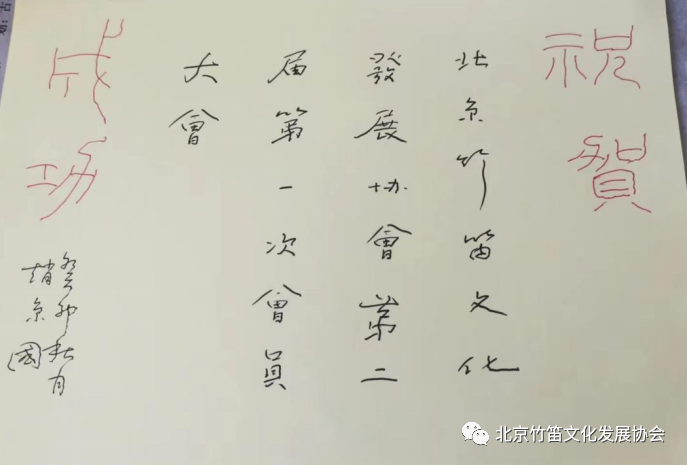 祝賀
北京竹笛文化
發展協會第二
届第一次會員
大會
成功
癸卯秋月
趙京國
北京竹笛文化发展协会